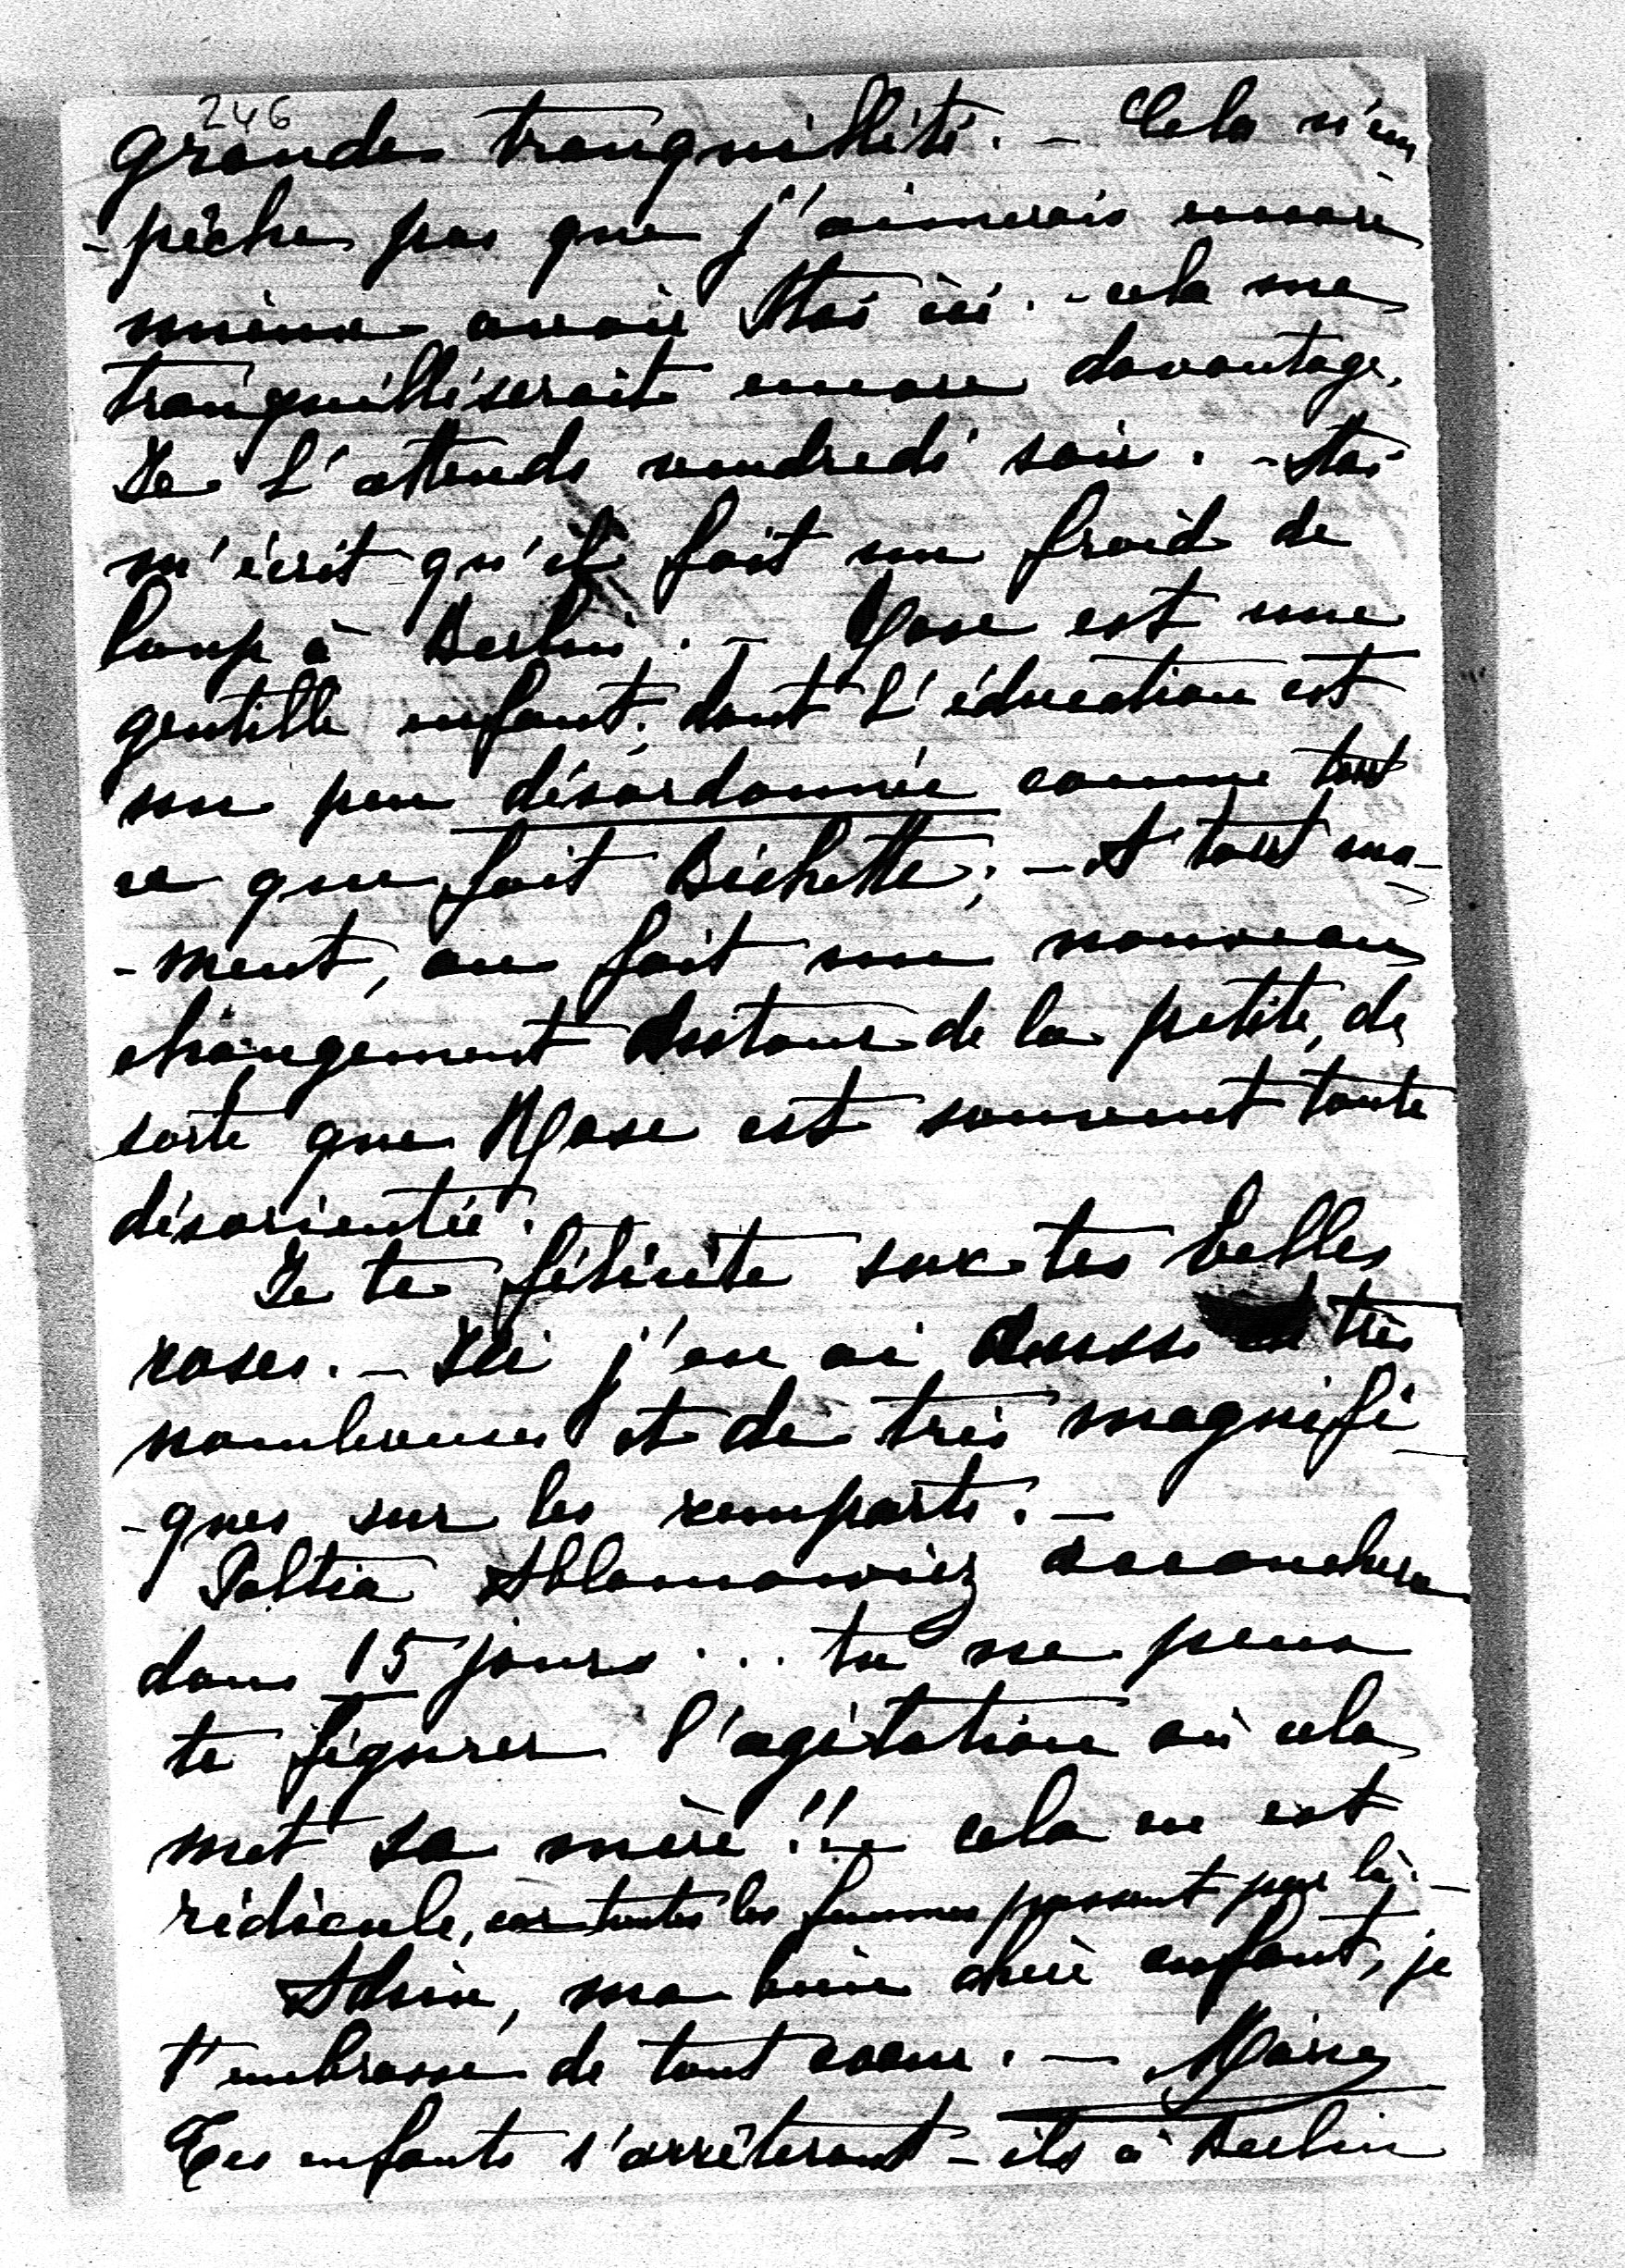 246
grande tranquillité. - Cela n'em
-pêche pas que j'aimerais encore
mieux avoir Stas ici. - cela me
tranquilliserait encore davantage.
Je L'attends vendredi soir. - Stas
m'écrit qu'il fait un froid de
loup à Berlin. - est une
gentille enfant, dont L'éducation est
un peu désordonnée comme tout
ce que fait Bichette; - A tout mo-
-ment, on fait un nouveau
changement autour de la petite, de
sorte que est souvent toute
désorientée.
Je te félicite sur tes belles
roses. - Ici j'en ai aussi de très
nombreuses et de très magnifi
-ques sur les remparts. -
accouchera
dans 15 jours... tu ne peux
te figurer l'agitation où cela
met sa mère!! - cela en est
ridicule, car toutes les femmes passent par là. -
Adieu, ma bien chère enfant, je
t'embrasse de tout coeur. - Marie
Tes enfants s'arrêteront-ils à Berlin